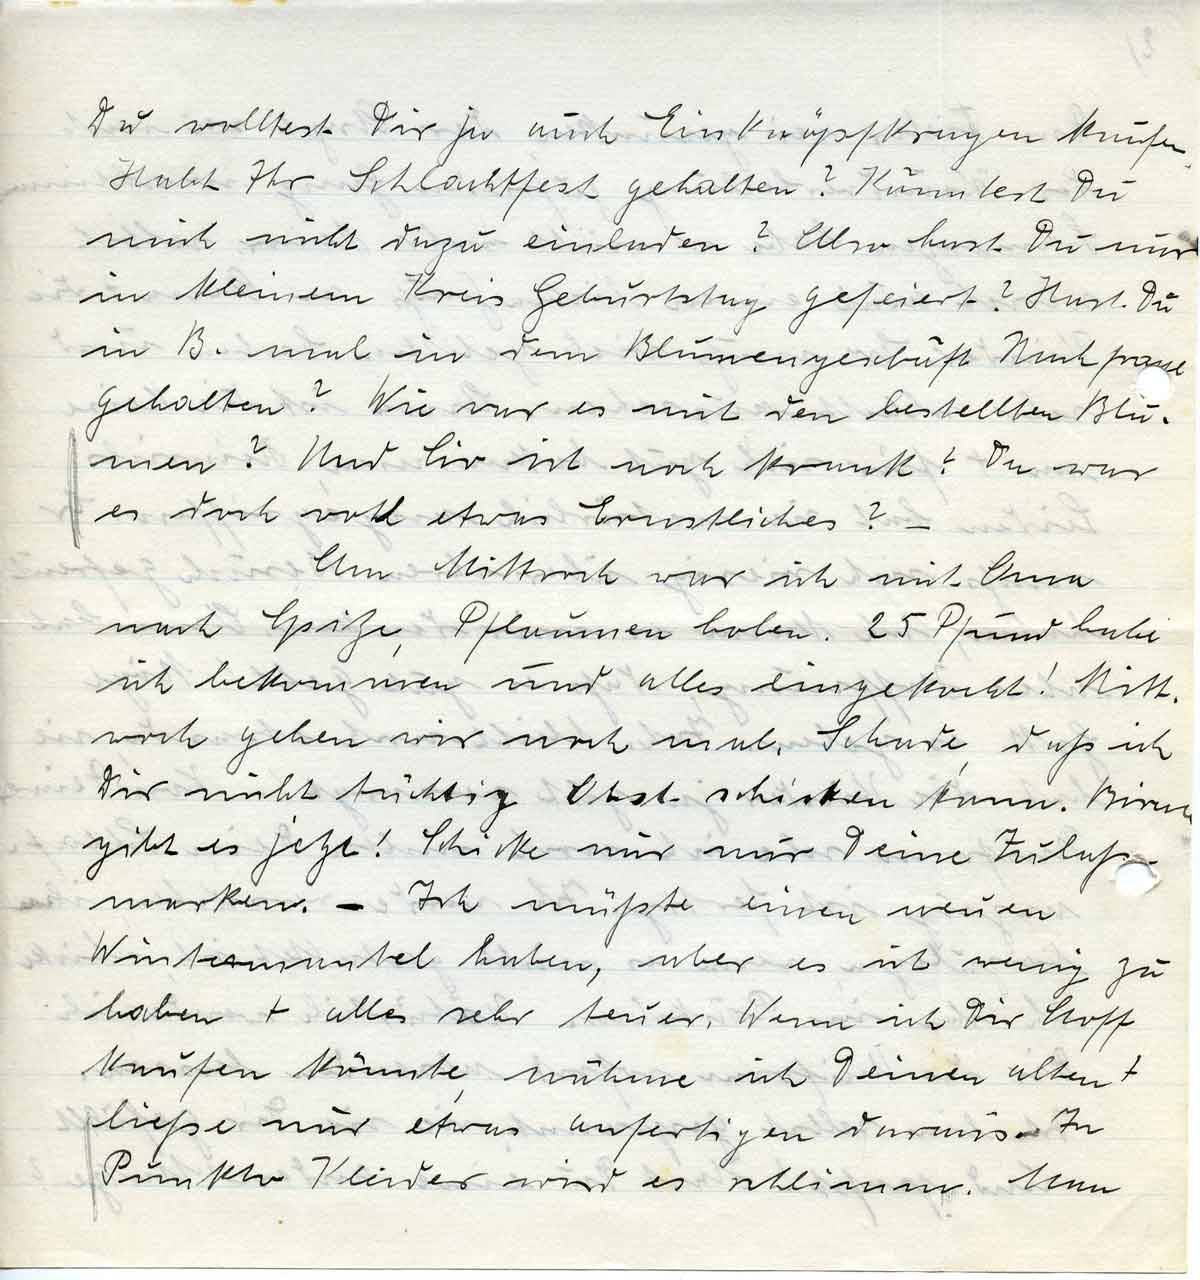 Du wolltest Dir ja auch Einsknöpfkragen kaufen.
Habt Ihr Schlachtfest gehalten? Könntest Du
mich nicht dazu einladen? Also hast Du nur
in kleinem Kreis Geburtstag gefeiert? Hast Du
in B. mal in dem Blumengeschäft Nachfrage
gehalten? Wie war es mit den bestellten Blu-
men? Und ist noch krank? Da war
es doch wohl etwas Ernstliches? –
Am Mittwoch war ich mit Oma
nach Spitze, Pflaumen holen. 25 Pfund habe
ich bekommen und alles eingekocht! Mitt-
woch gehen wir noch mal. Schade, daß ich
Dir nicht tüchtig Obst schicken kann. Birnen
gibt es jetzt! Schicke mir nur Deine Zulaß-
marken. – Ich müßte einen neuen
Wintermantel haben, aber es ist wenig zu
haben + alles sehr teuer. Wenn ich Dir Stoff
kaufen könnte, nähme ich Deinen alten +
ließe mir etwas anfertigen daraus. In
Punkto Kleider wird es schlimm. Man